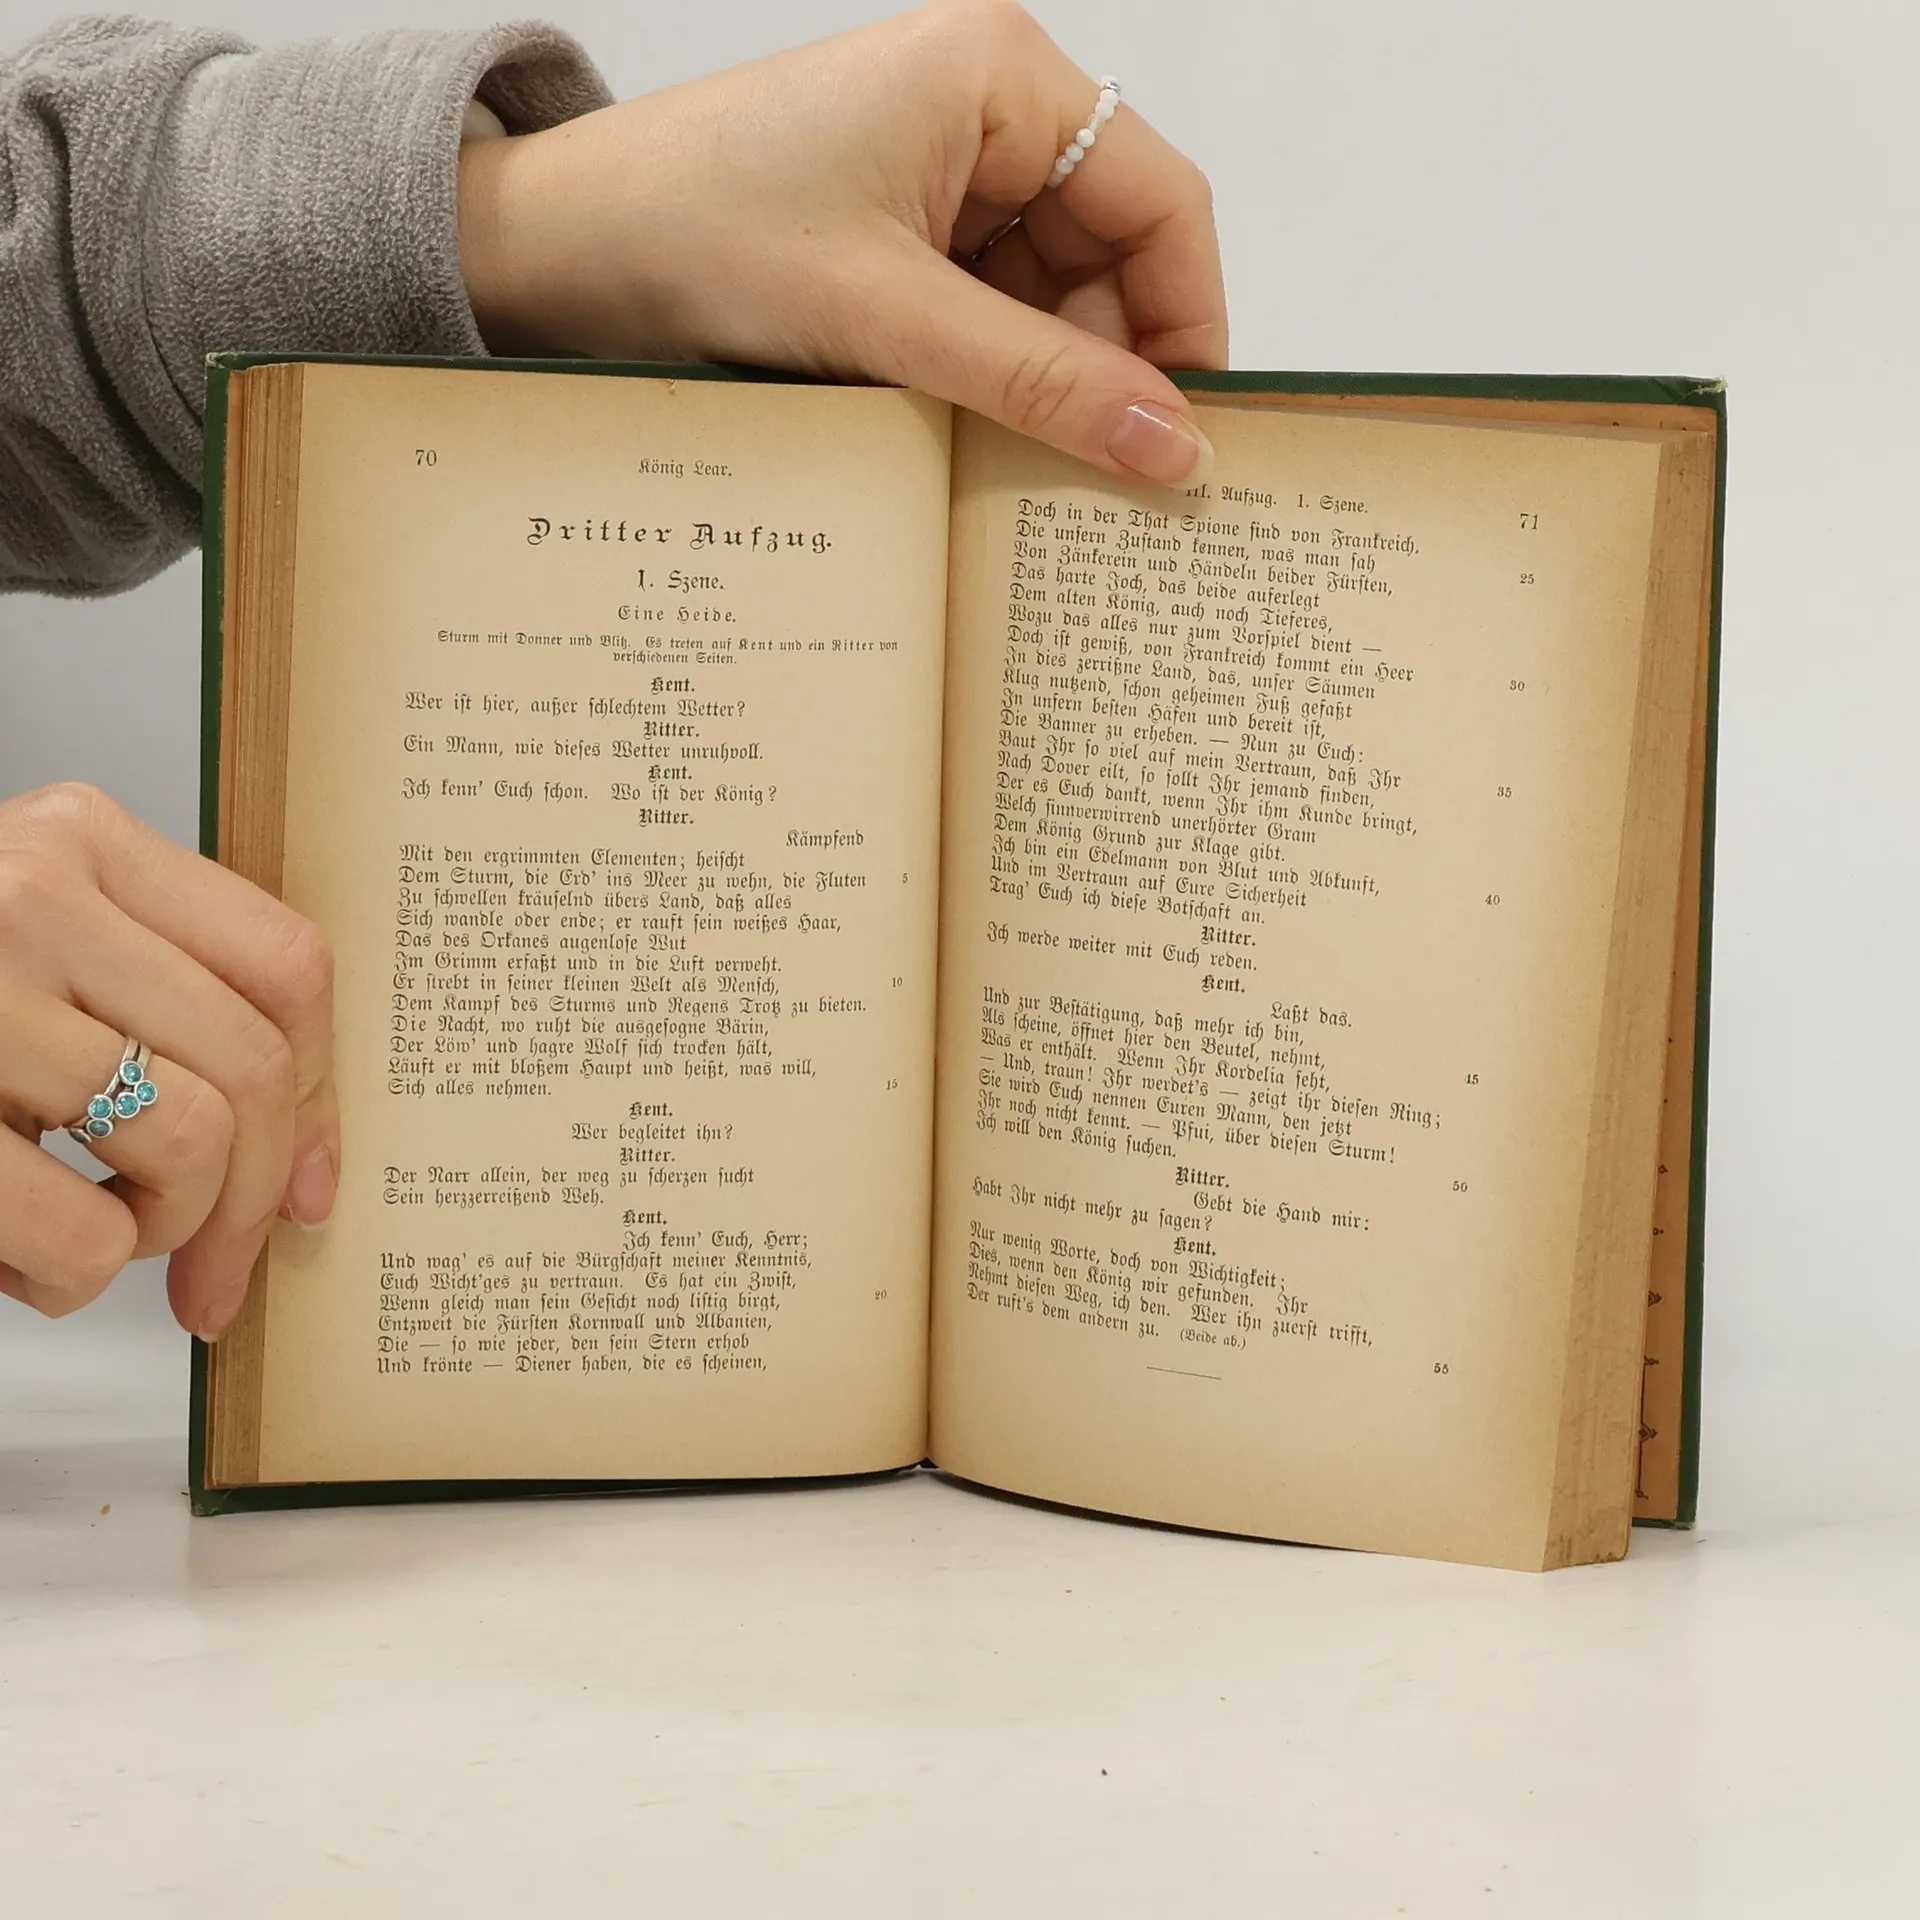 70
König Lear.
Dritter Aufzug.
1. Szene.
Eine Heide.
Sturm mit Donner und Blitz. Es treten auf Kent und ein Ritter von
verschiedenen Seiten.
Kent.
Wer ist hier, außer schlechtem Wetter?
Ritter.
Ein Mann, wie dieses Wetter unruhvoll.
Kent.
Ich kenn' Euch schon. Wo ist der König?
Ritter.
Kämpfend
Mit den ergrimmten Elementen; heischt
Dem Sturm, die Erd' ins Meer zu wehn, die Fluten 5
Zu schwellen kräuselnd übers Land, daß alles
Sich wandle oder ende; er rauft sein weißes Haar,
Das des Orkanes augenlose Wut
Im Grimm erfaßt und in die Luft verweht.
Er strebt in seiner kleinen Welt als Mensch, 10
Dem Kampf des Sturms und Regens Trotz zu bieten.
Die Nacht, wo ruht die ausgesogne Bärin,
Der Löw' und hagre Wolf sich trocken hält,
Läuft er mit bloßem Haupt und heißt, was will,
Sich alles nehmen. 15
Kent.
Wer begleitet ihn?
Ritter.
Der Narr allein, der weg zu scherzen sucht
Sein herzzerreißend Weh.
Kent.
Ich kenn' Euch, Herr;
Und wag' es auf die Bürgschaft meiner Kenntnis,
Euch Wicht'ges zu vertraun. Es hat ein Zwist,
Wenn gleich man sein Gesicht noch listig birgt, 20
Entzweit die Fürsten Kornwall und Albanien,
Die — so wie jeder, den sein Stern erhob
Und krönte — Diener haben, die es scheinen,
III. Aufzug. 1. Szene.
71
Doch in der That Spione sind von Frankreich,
Die unsern Zustand kennen, was man sah
Von Zänkerein und Händeln beider Fürsten, 25
Das harte Joch, das beide auferlegt
Dem alten König, auch noch Tieferes,
Wozu das alles nur zum Vorspiel dient —
Doch ist gewiß, von Frankreich kommt ein Heer
In dies zerrißne Land, das, unser Säumen 30
Klug nutzend, schon geheimen Fuß gefaßt
In unsern besten Häfen und bereit ist,
Die Banner zu erheben. — Nun zu Euch:
Baut Ihr so viel auf mein Vertraun, daß Ihr
Nach Dover eilt, so sollt Ihr jemand finden, 35
Der es Euch dankt, wenn Ihr ihm Kunde bringt,
Welch sinnverwirrend unerhörter Gram
Dem König Grund zur Klage gibt.
Ich bin ein Edelmann von Blut und Abkunft,
Und im Vertraun auf Eure Sicherheit 40
Trag' Euch ich diese Botschaft an.
Ritter.
Ich werde weiter mit Euch reden.
Kent.
Laßt das.
Und zur Bestätigung, daß mehr ich bin,
Als scheine, öffnet hier den Beutel, nehmt,
Was er enthält. Wenn Ihr Kordelia seht, 45
— Und, traun! Ihr werdet's — zeigt ihr diesen Ring;
Sie wird Euch nennen Euren Mann, den jetzt
Ihr noch nicht kennt. — Pfui, über diesen Sturm!
Ich will den König suchen.
Ritter.
Gebt die Hand mir: 50
Habt Ihr nicht mehr zu sagen?
Kent.
Nur wenig Worte, doch von Wichtigkeit;
Dies, wenn den König wir gefunden. Ihr
Nehmt diesen Weg, ich den. Wer ihn zuerst trifft,
Der ruft's dem andern zu. (Beide ab.) 55